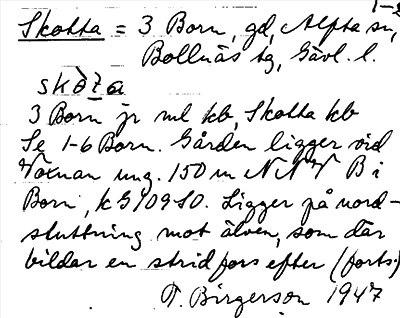 1-2
Skotta = 3 Born, gd, Alfta sn,
Bollnäs tg, Gävl. l.
skòta
3 Born jr ml kb, Skotta kb
Se 1-6 Born. Gården ligger vid
Voxnan ung. 150 m NNV B i
Born, kG109SO. Ligger på nord-
sluttning mot älven, som där
bildar en strid fors efter (forts.)
T. Birgerson 1947